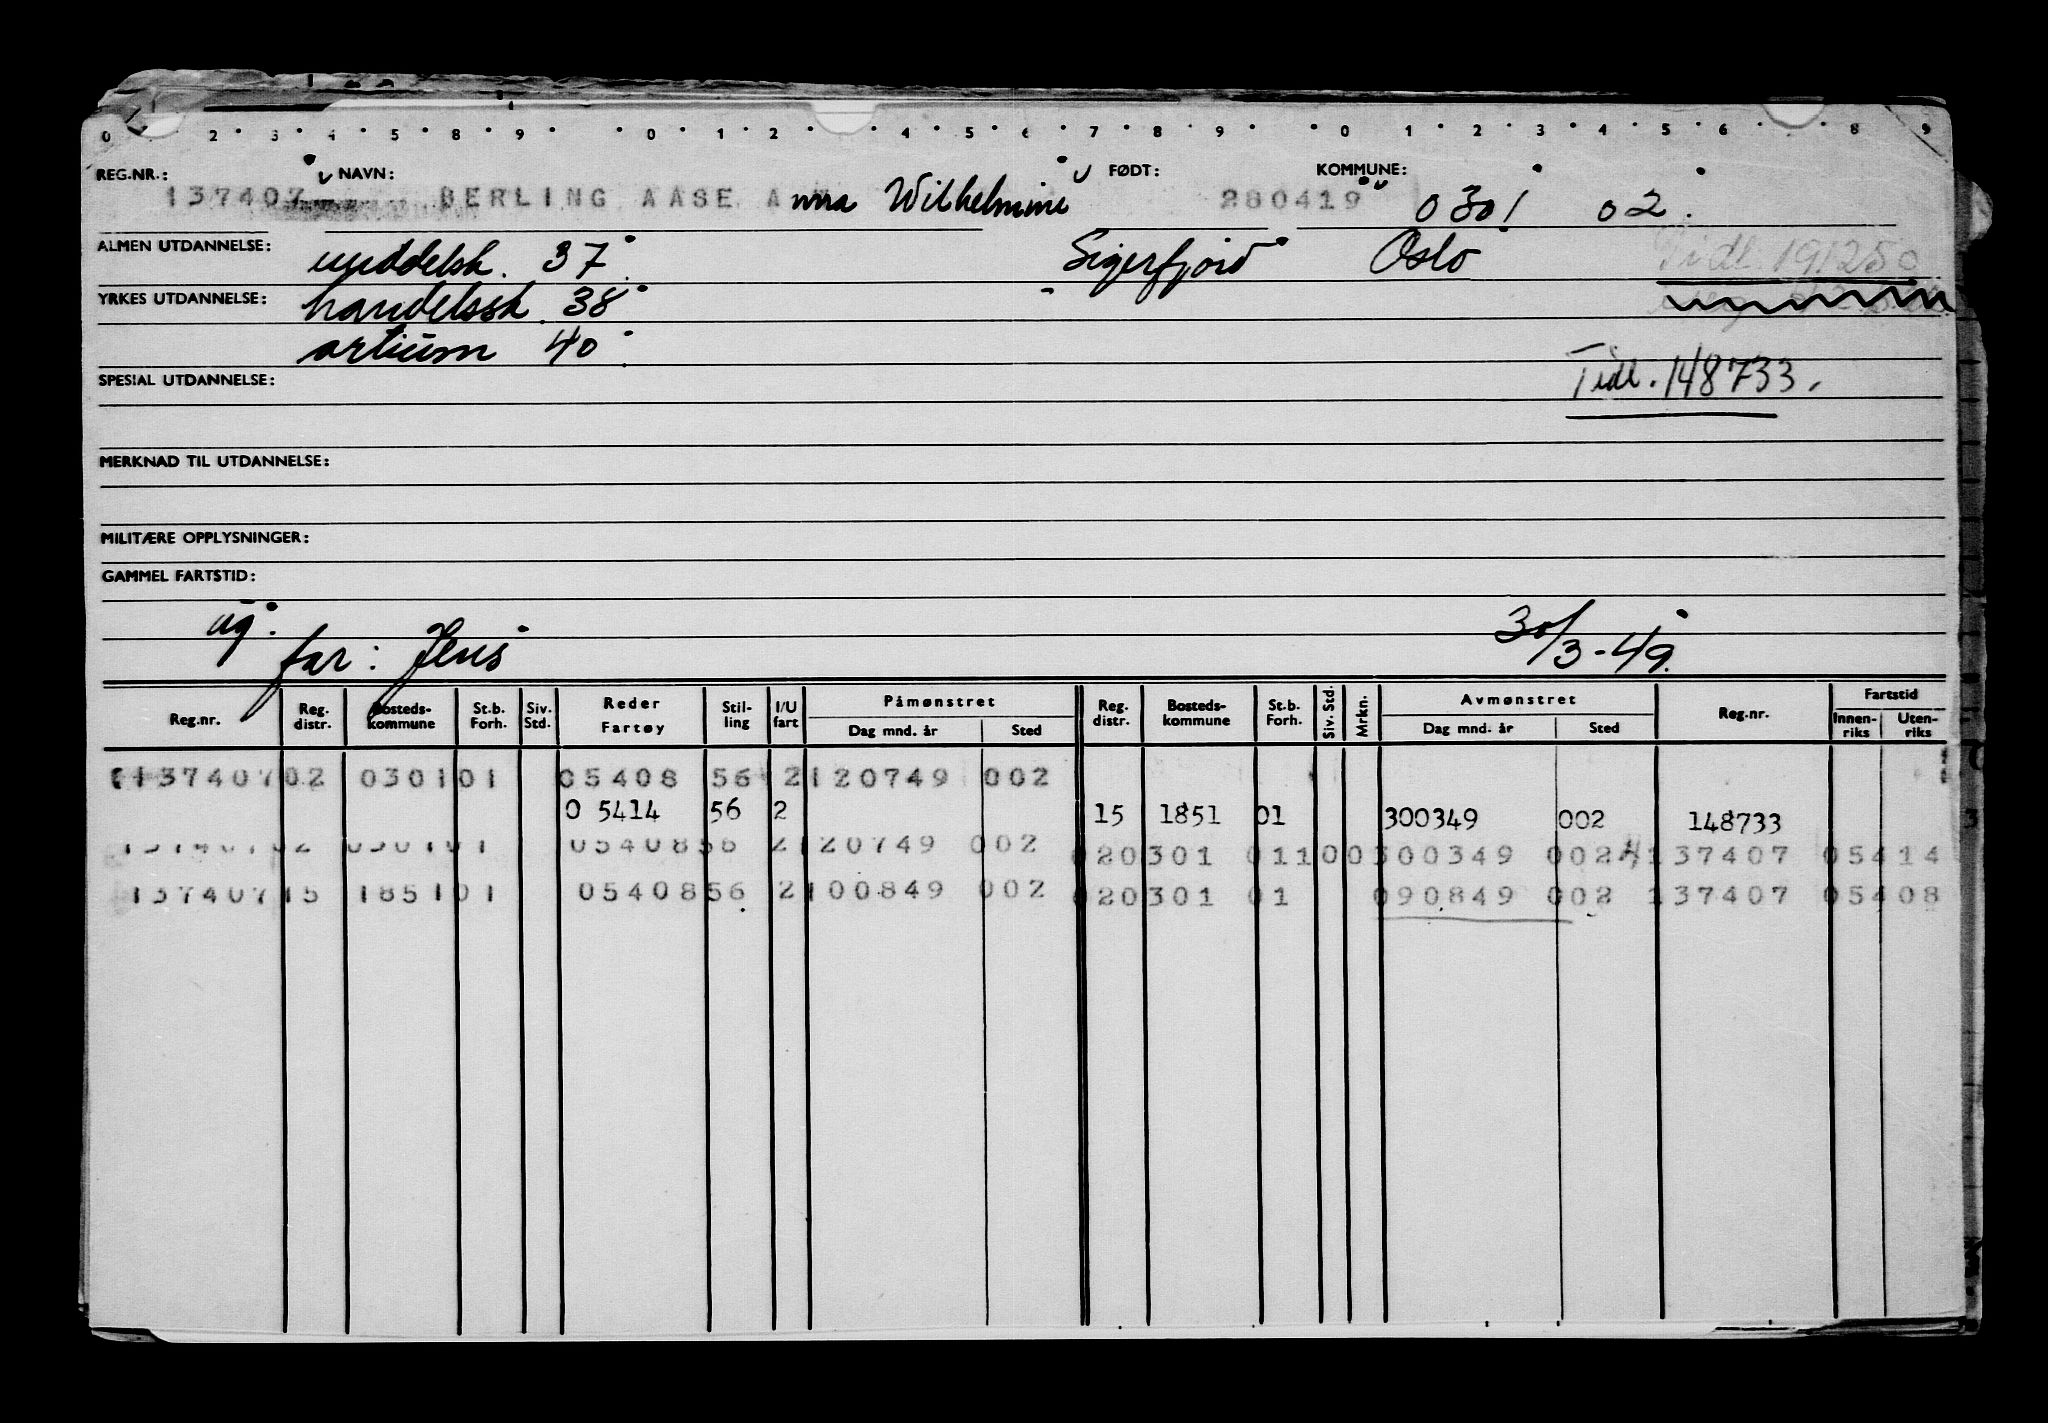 0 2 3 4 5 8 9 0 1 2 4 5 6 7 8 9 0 1 2 3 4 5 6 8 9
REG.NR.: NAVN: FØDT: KOMMUNE:
137407 BERLING AASE Anna Wilhelmine 280419 0301 02.
ALMEN UTDANNELSE: middelsk. 37 Sigerfjord Oslo Tidl. 191250
YRKES UTDANNELSE: handelssk. 38
artium 40
SPESIAL UTDANNELSE: Tidl. 148733.
MERKNAD TIL UTDANNELSE:
MILITÆRE OPPLYSNINGER:
GAMMEL FARTSTID:
ug.
far: Jens 30/3-49.
Reg.nr. Reg. distr. Bosteds-kommune St.b. Forh. Siv. Std. Reder Fartøy Stil-ling I/U fart Påmønstret Dag mnd. år Sted Reg. distr. Bosteds-kommune St.b. Forh. Siv. Std. Mrkn. Avmønstret Dag mnd. år Sted Reg.nr. Fartstid Innen-riks Uten-riks
137407 02 0301 01 05408 56 2 120749 002
0 5414 56 2 15 1851 01 300349 002 148733
137407 02 0301 01 05408 56 2 120749 002 020301 011 00 300349 002 4 137407 05414
137407 15 1851 01 05408 56 2 100849 002 020301 01 090849 002 137407 05408